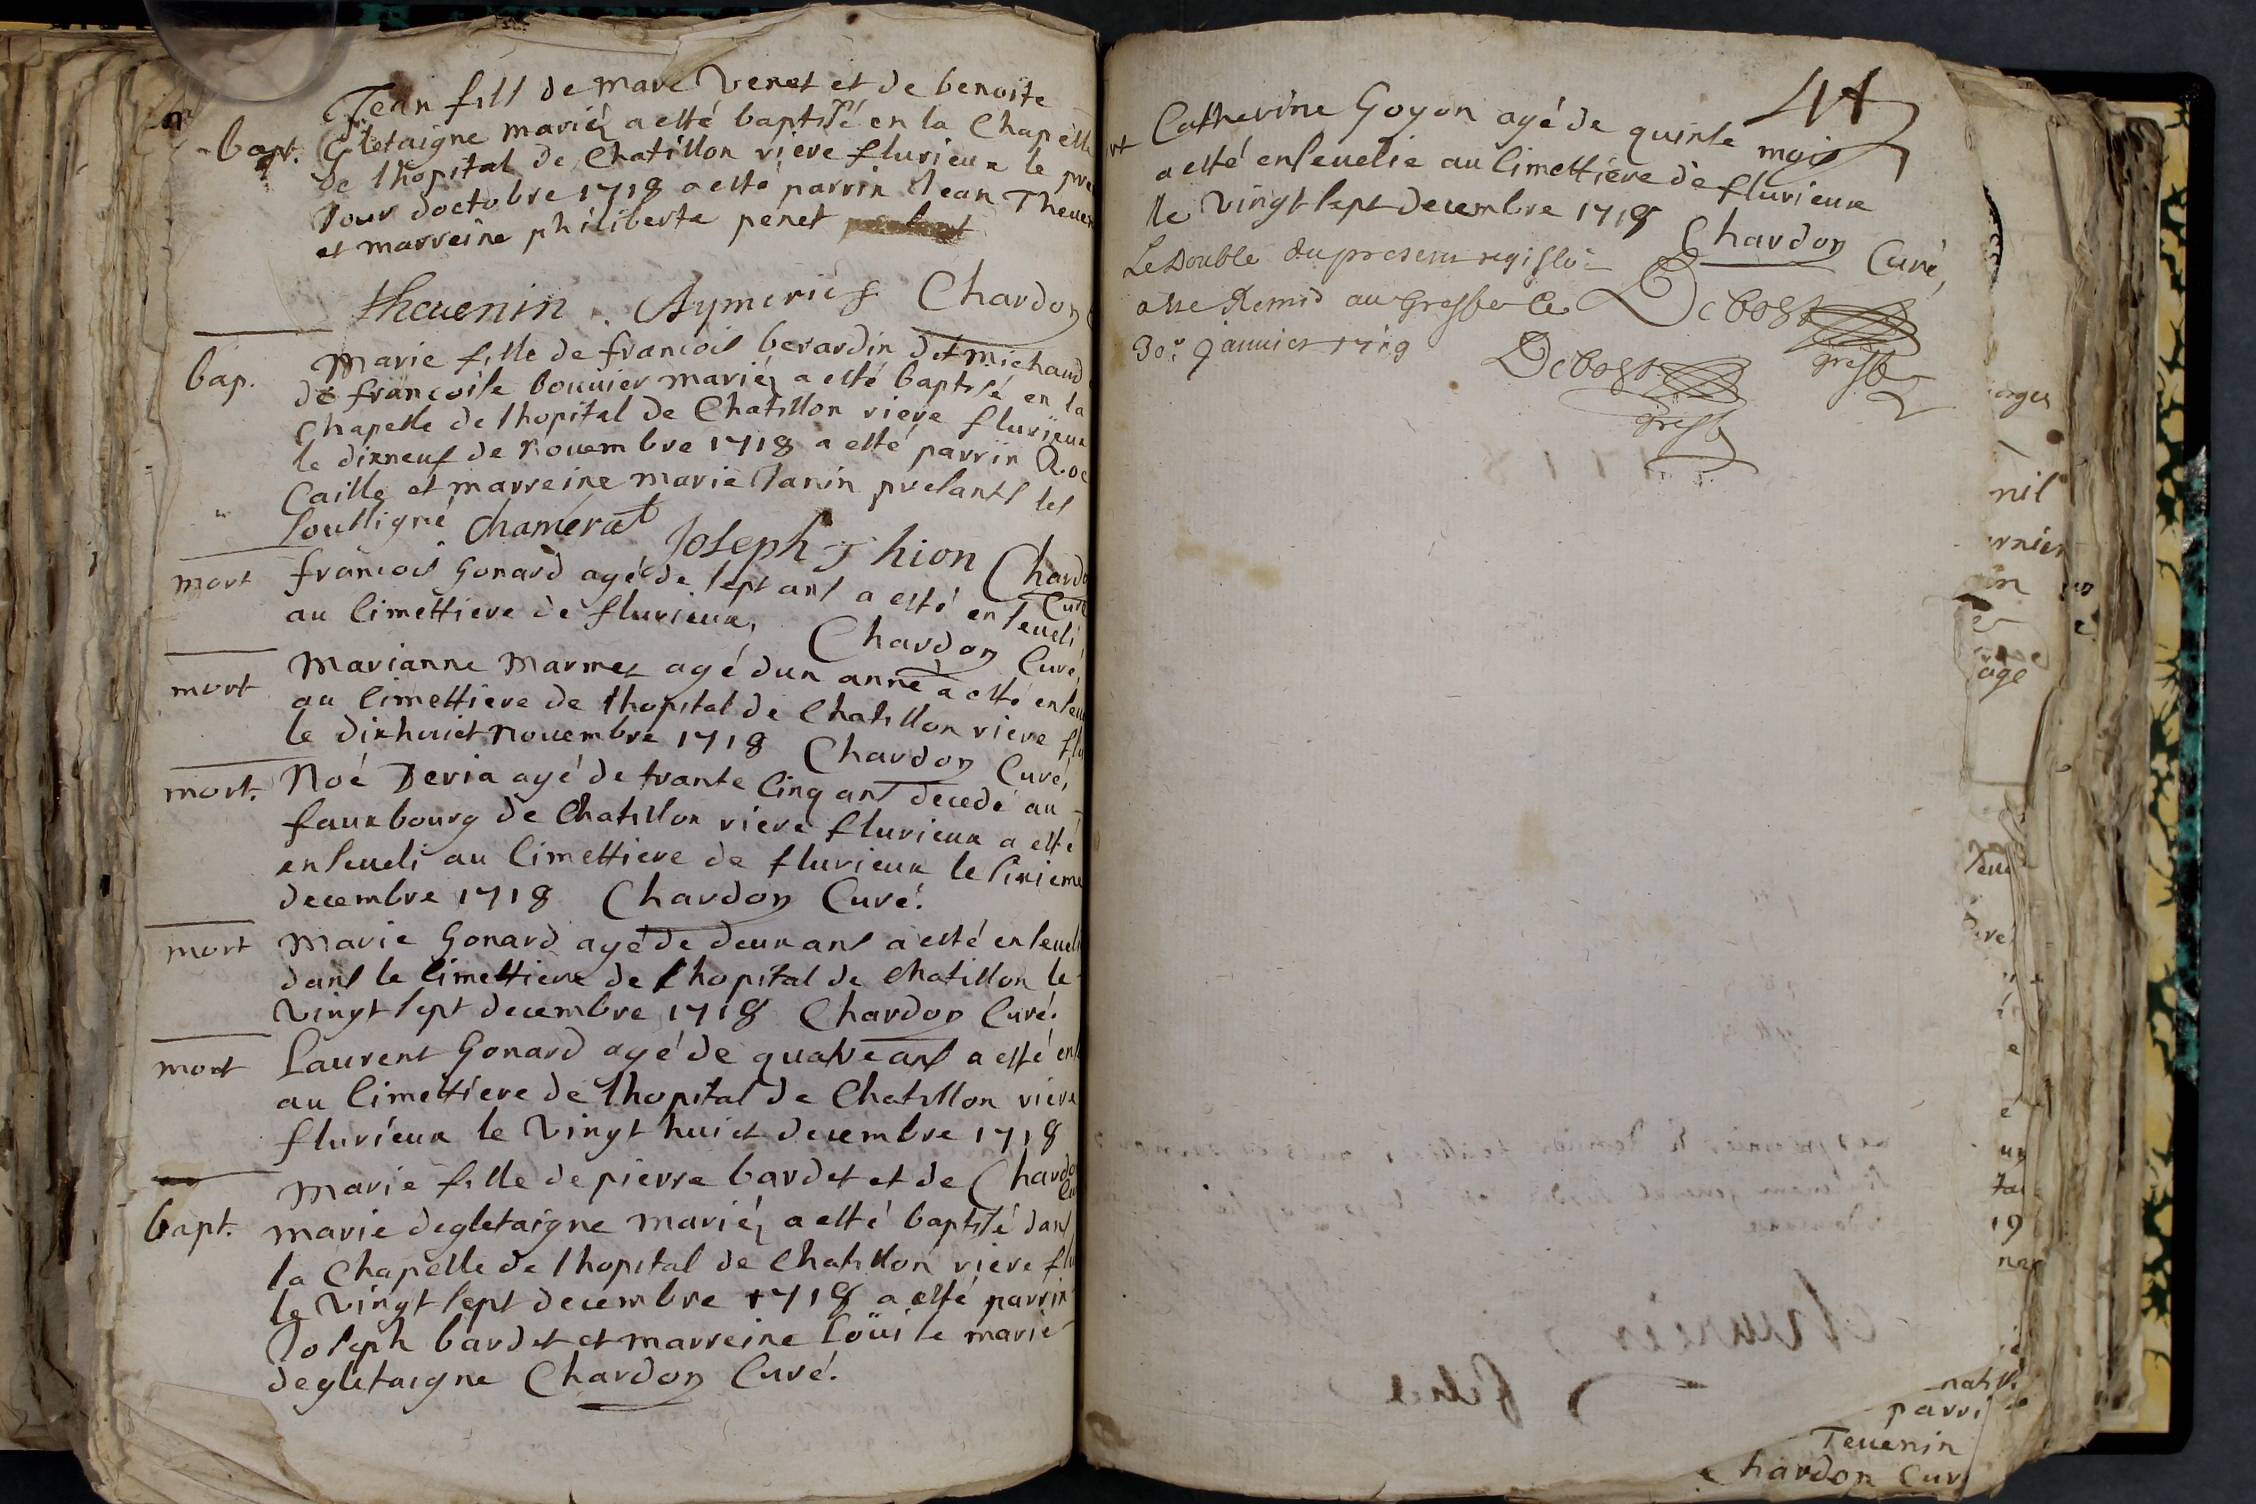 bapt. Jean fils de marc Venet et de benoite
Gletaigne mariéz a esté baptisé en la Chapelle
de lhopital de Chatillon riere flurieux le pre
Jour doctobre 1718 a esté parrin Jean Theuen
et marreine philiberte penet
theuenin. Aymeries Chardon
bap. Marie fille de francois berardin dit michaud
de francoise bouuier mariéz a esté baptisé en la
Chapelle de lhopital de Chatillon riere flurieux
le dixneuf de Nouembre 1718 a esté parrin Roc
Caille et marreine marie Janin presants les
soussigné Chamerat Joseph Thion Chardo
Curé
mort francois Gonard agé de sept ans a esté enseueli
au Cimettiere de flurieux, Chardon Curé,
mort Marianne Marmet agé dun anné a esté enseu
au Cimettiere de lhopital de Chatillon riere flu
le dixhuict Nouembre 1718 Chardon Curé,
mort. Noé Deria agé de trante Cinq ans decedé au
fauxbourg de Chatillon riere flurieux a esté
enseueli au Cimettiere de flurieux le Sixieme
decembre 1718 Chardon Curé.
mort Marie Gonard agé de deux ans a esté enseueli
dans le Cimettiere de lhopital de Chatillon le
Vingt sept decembre 1718 Chardon Curé.
mort Laurent Gonard agé de quatre ans a esté ense
au Cimettiere de lhopital de Chatillon riere
flurieux le Vingt huict decembre 1718
Chardon
Cu
bapt. Marie fille de pierre bardet et de
marie degletaigne mariéz a esté baptisé dans
la Chapelle de lhopital de Chatillon riere flu
le Vingt sept decembre 1718 a esté parrin
Joseph bardet et marreine Loüise marie
degletaigne Chardon Curé.
rt Catherine Goyon agé de quinse mois
a esté enseuelie au Cimettiere de flurieux
le Vingt sept decembre 1718
Chardon Curé,
Le Double du present registre
a été Remis au Greffe le
30e Januier 1719
Debost
greff
Debost
greff
orges
nil
rnier
age
19
parri
Teuenin
hardon Cur